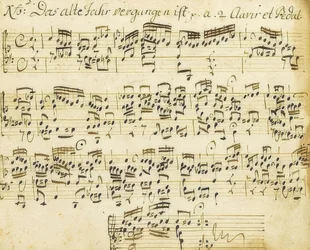 No. Das alte Jahr vergangen ist p. a. 2 Clavir et Pedal